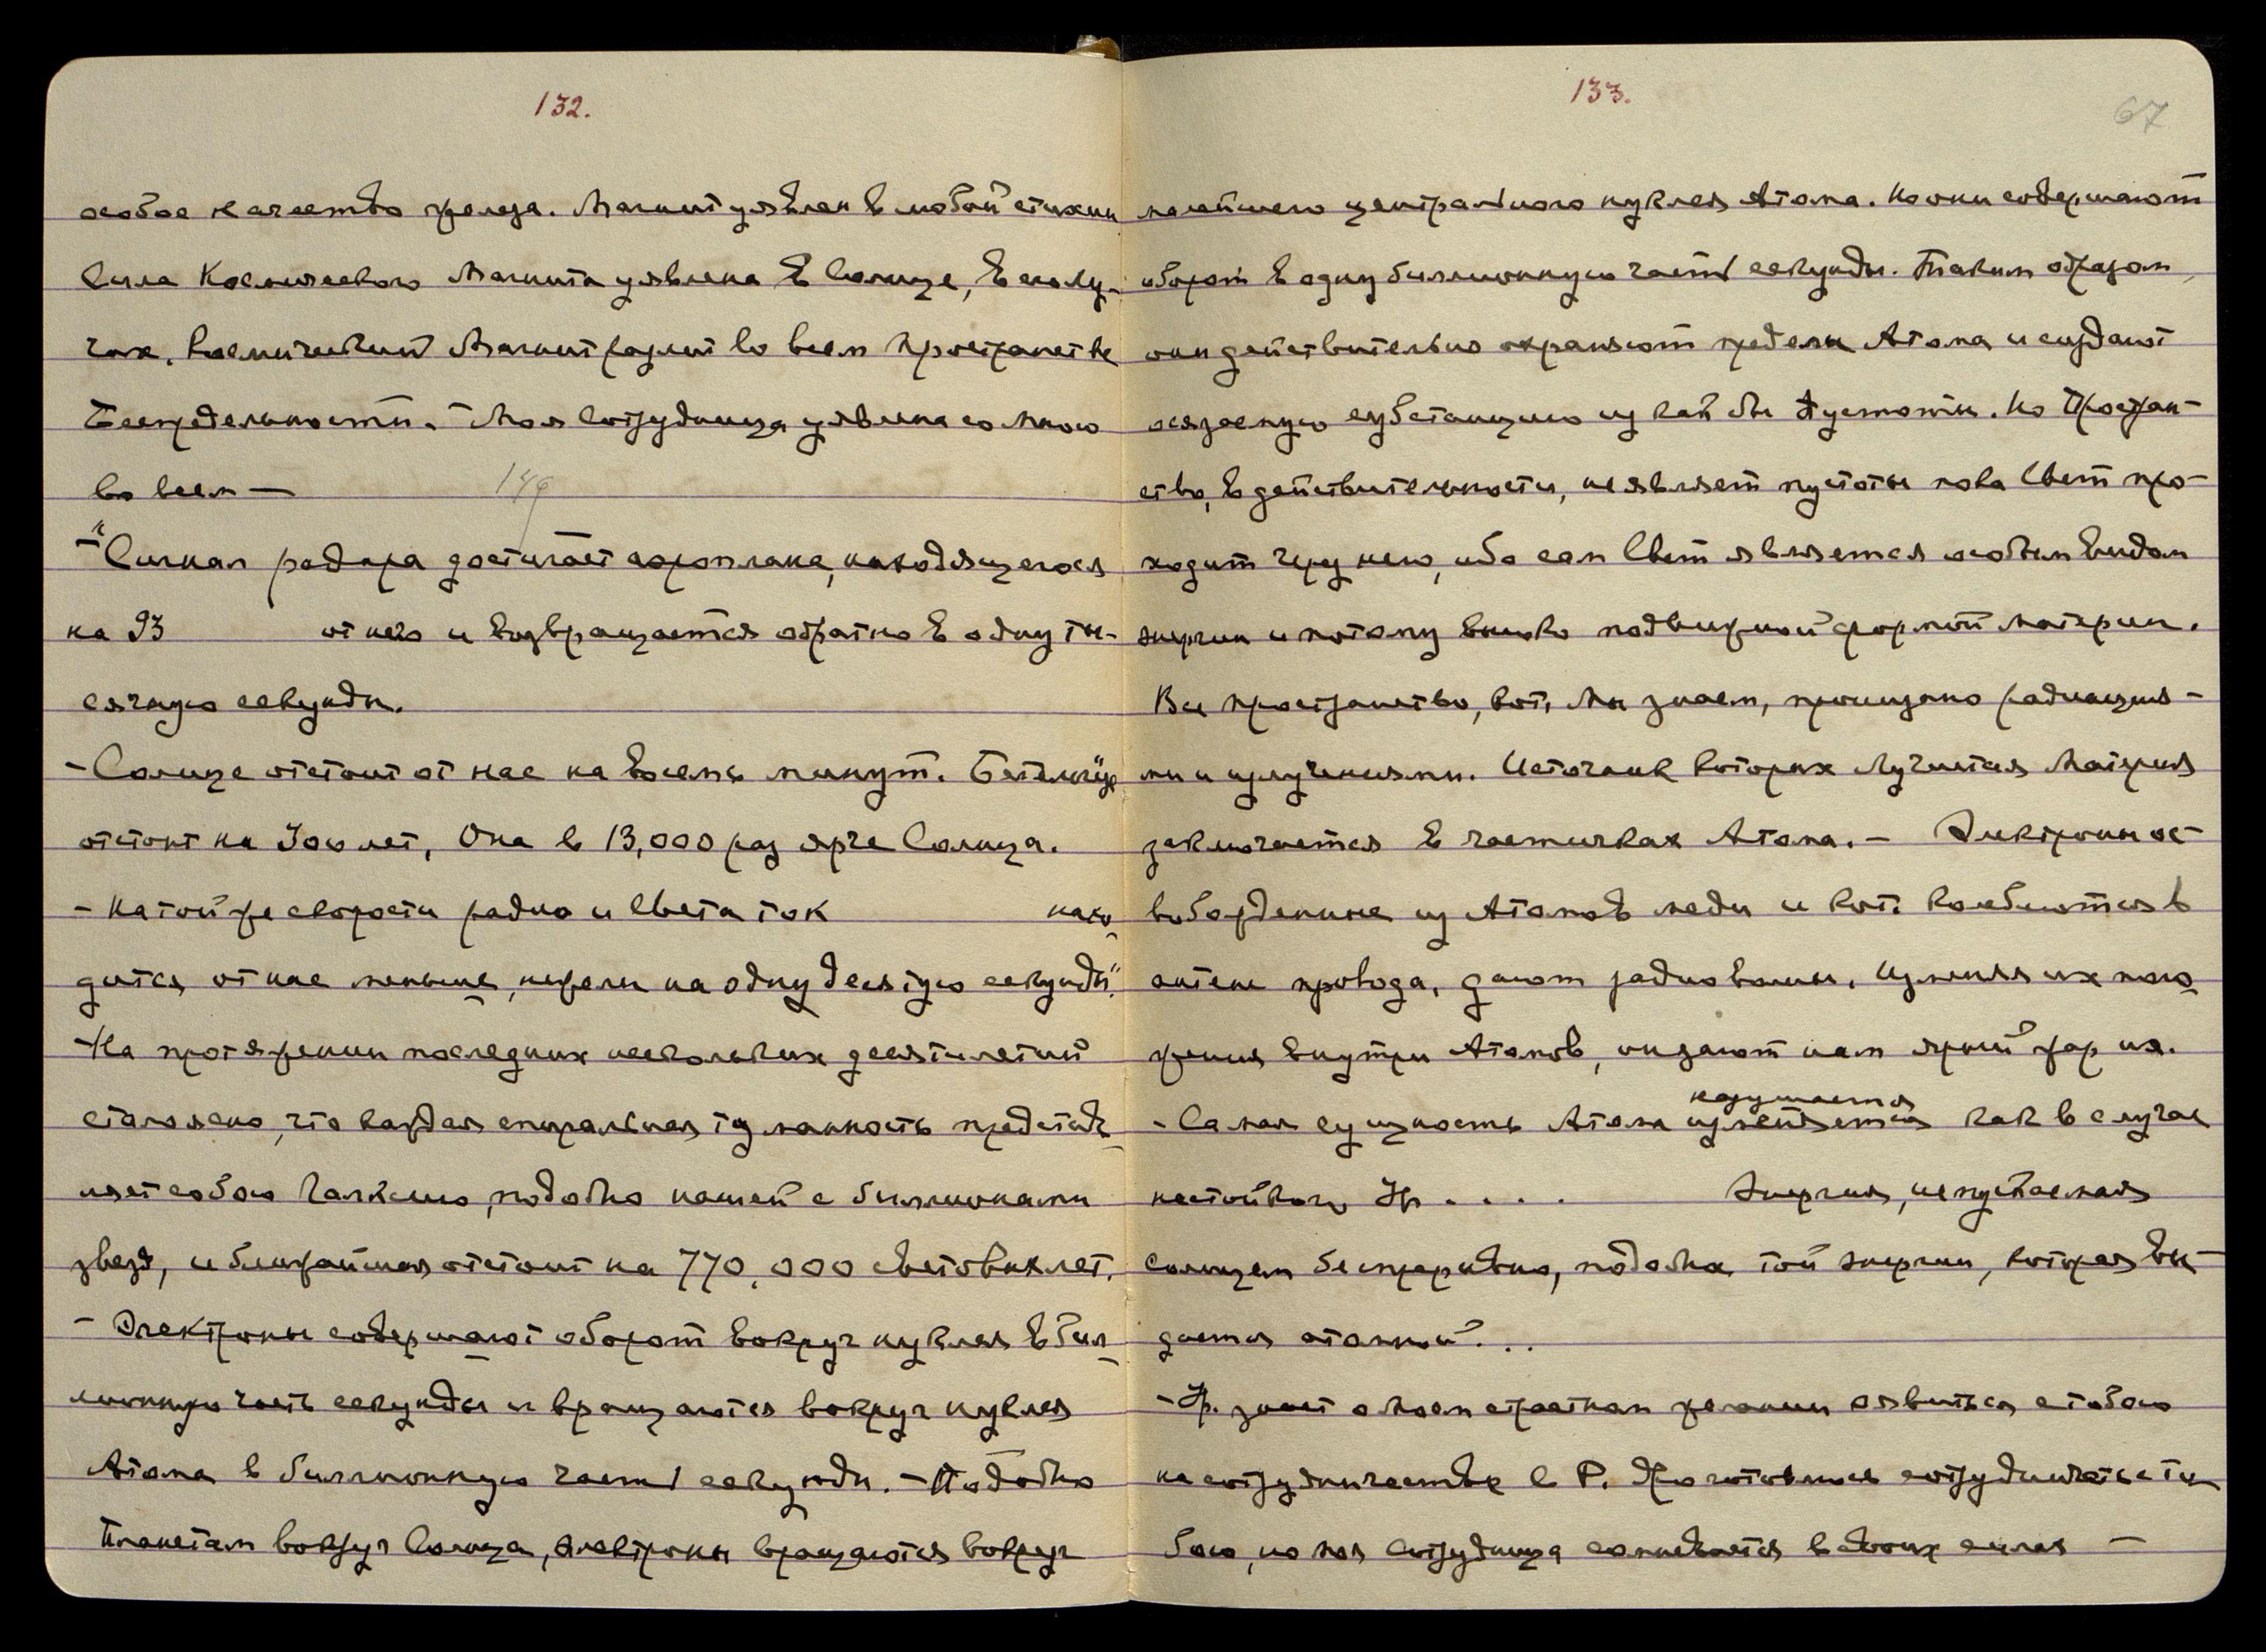 132.
особое качество железа. Магнит уявлен в любой стихии
Сила Космического Магнита уявлена в Солнце, в его лу-
чах. Космический Магнит разлит во всем Пространстве
Беспредельности. – Моя Сотрудница уявлена со Мною
во всем —
149
– "Сигнал радара достигает аэроплана, находящегося
на 93 от него и возвращается обратно в одну ты-
сячную секунды.
– Солнце отстоит от нас на восемь минут. Бетельгейзе
отстоит на 300 лет, Она в 13,000 раз ярче Солнца.
– На той же скорости радио и света ток нахо-
дится от нас меньше, нежели на одну десятую секунды".
– На протяжении последних нескольких десятилетий
стало ясно, что каждая спиральная туманность представ-
ляет собою Галксию, подобно нашей с биллионами
звезд, и ближайшая отстоит на 770,000 световых лет.
– Электроны совершают оборот вокруг нуклея в бил-
лионную часть секунды и вращаются вокруг нуклея
Атома в биллионную часть секунды. – Подобно
Планетам вокруг Солнца, электроны вращаются вокруг
133.
67
малейшего центрального нуклея Атома. Но они совершают
оборот в одну биллионную часть секунды. Таким образом,
они действительно охраняют пределы Атома и создают
осязаемую субстанцию из как бы Пустоты. Но Простран-
ство, в действительности, не являет пустоты пока Свет про-
ходит через него, ибо сам Свет является особым видом
энергии и потому высоко подвижной формой материи.
Все пространство, кот. мы знаем, пронизано радиация-
ми и излучениями. Источник которых Лучистая Материя
заключается в частичках Атома. – Электроны ос-
вобожденные из Атомов меди и кот. колеблются в
антене провода, дают радио волны. Изменяя их поло-
жения внутри Атомов, они дают нам яркий жар их.
нарушается
– Самая сущность Атома изменяется как в случае
настойкою Ур. . . . Энергия, испускаемая
солнцем беспрерывно, подобна той энергии, которая вы-
дается атомной...
– Ур. знает о Моем страстном желании явиться с тобою
на сотрудничестве с Р. Ур. готовился сотрудничать с то-
бою, но моя сотрудница сомневается в своих силах —